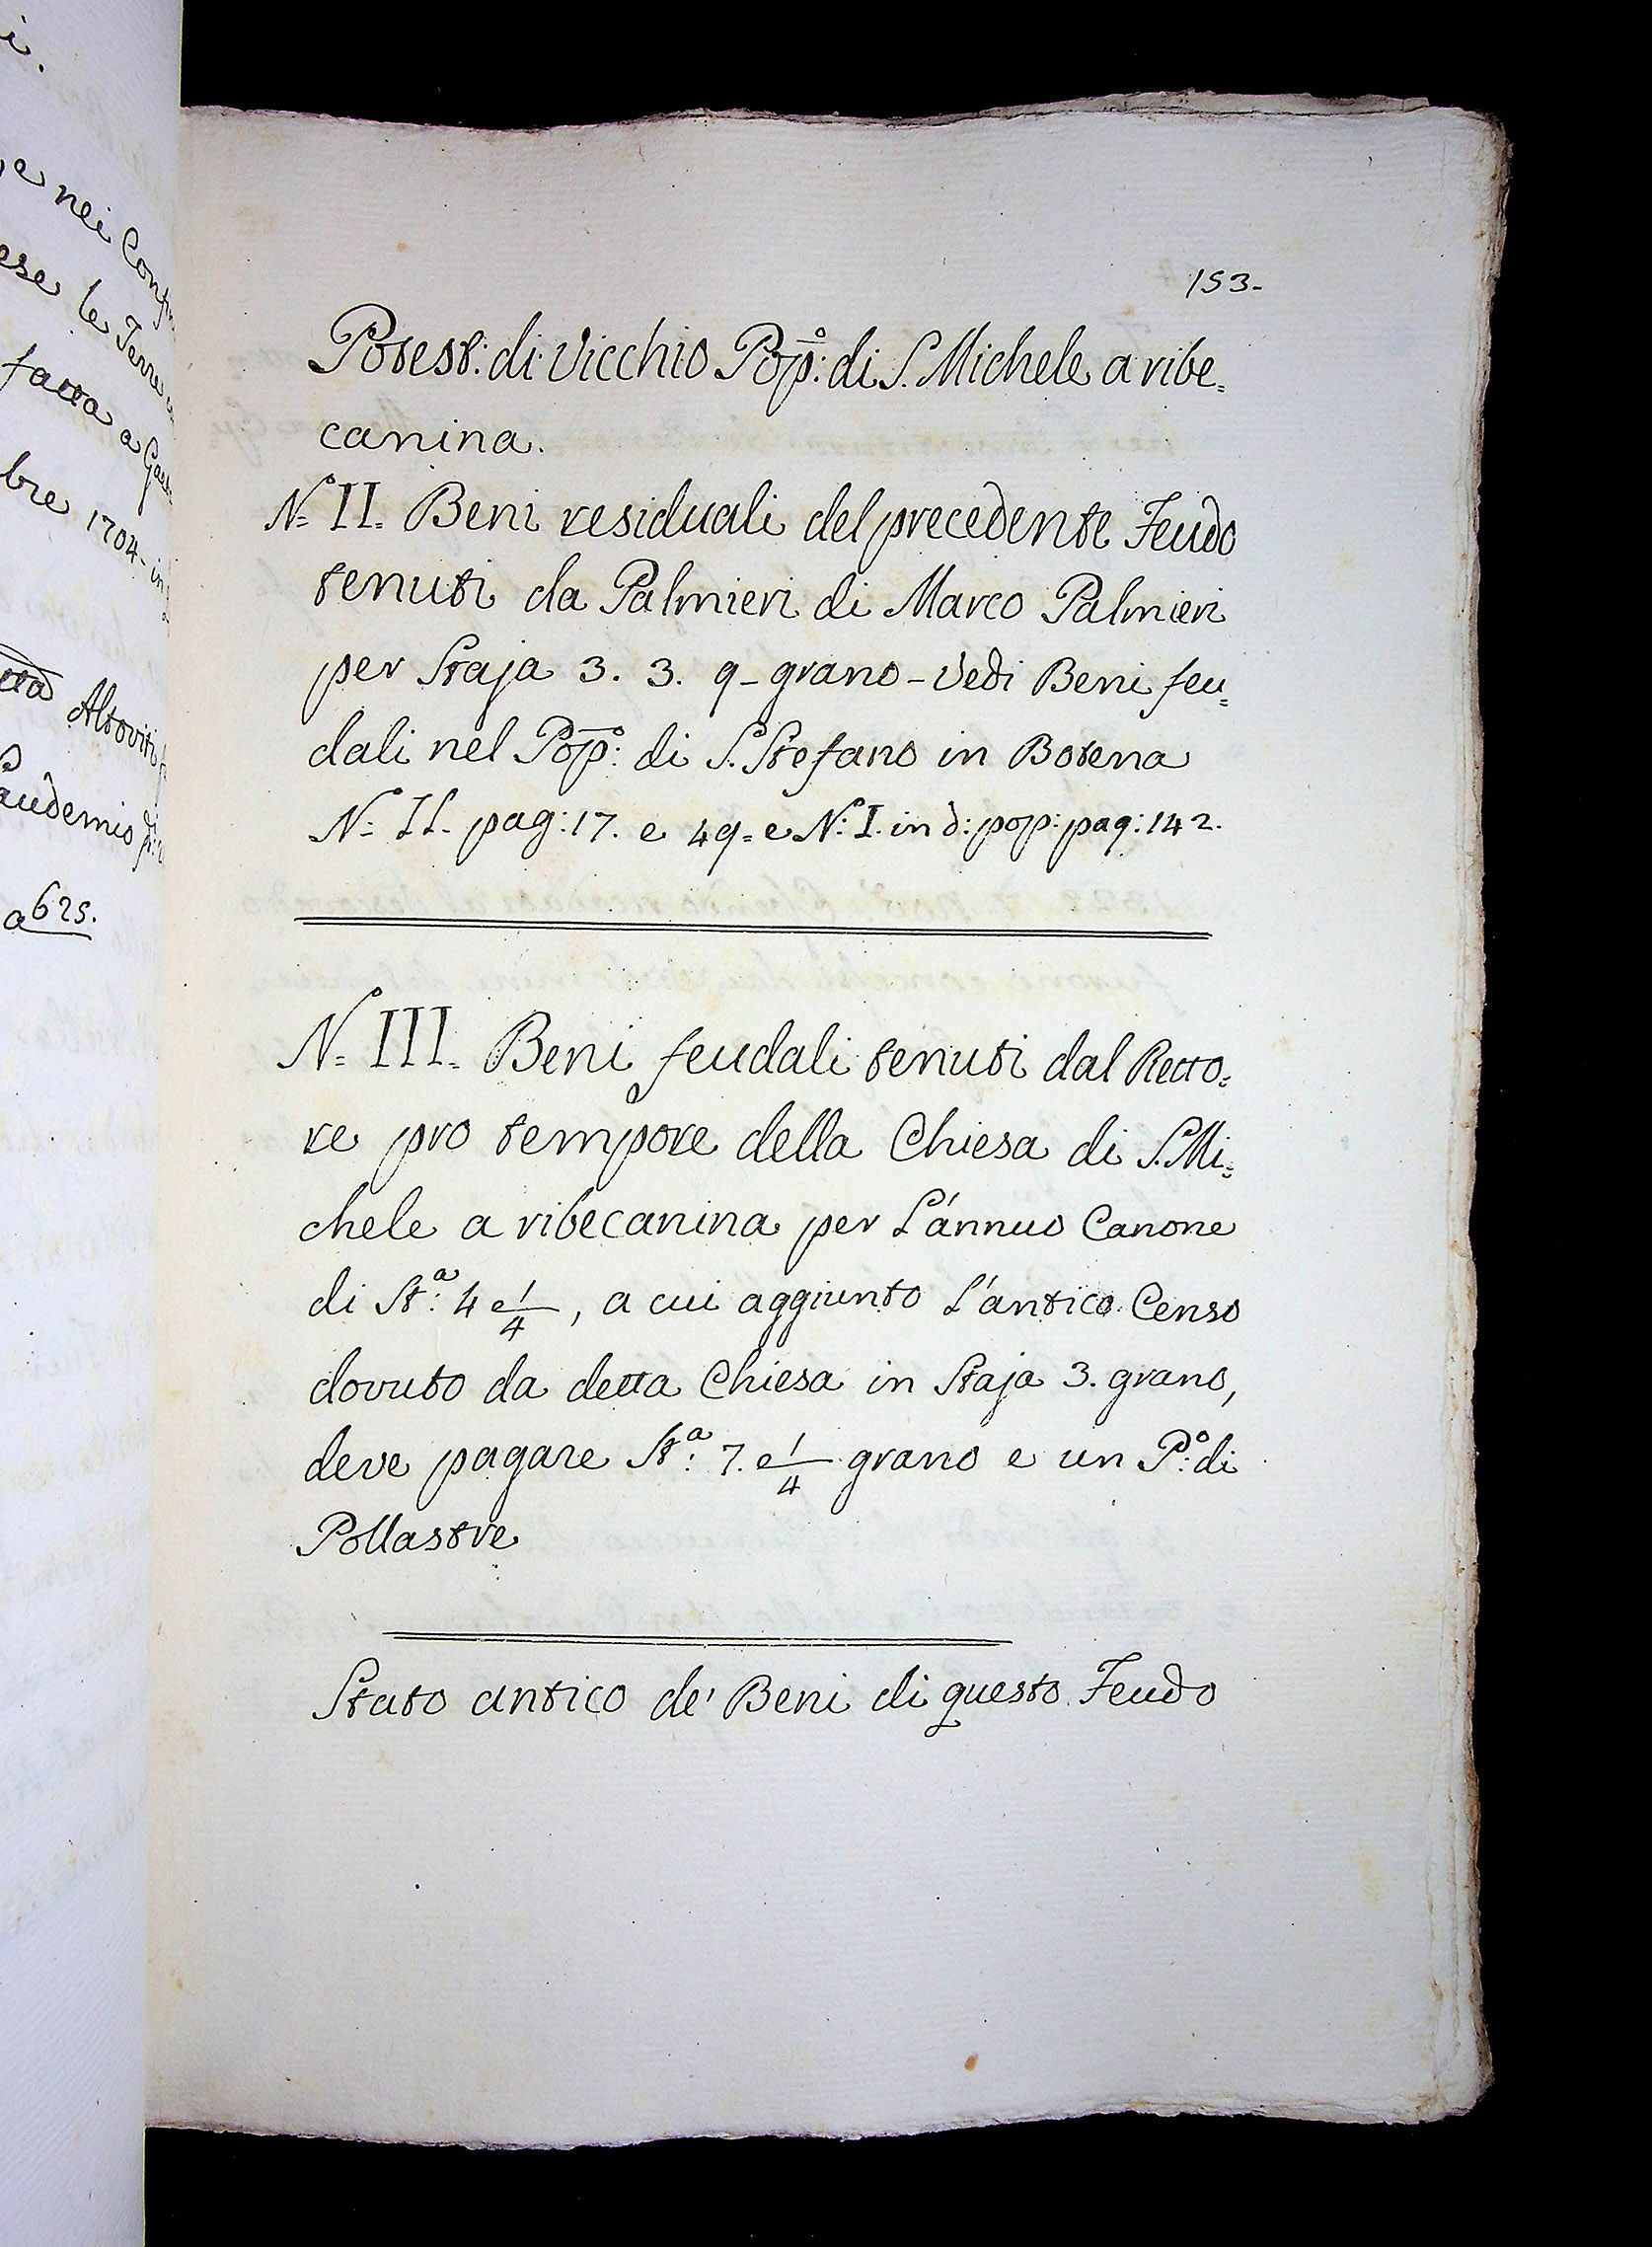 i.
e nei Con
ese le Terre
fatta a
bre 1704- in
Altoviti
audemio
a 625.
153-
Potest: di Vicchio Pop:º di S. Michele a ribe=
canina.
Nº II. Beni residuali del precedente Feudo
tenuti da Palmieri di Marco Palmieri
per Staja 3. 3. 9- grano - Vedi Beni feu=
dali nel Pop: di S. Stefano in Botena
N: II. pag: 17. e 49= e N: I. in d: pop: pag: 142.
Nº III. Beni feudali tenuti dal Retto=
re pro tempore della Chiesa di S. Mi=
chele a ribecanina per L'annuo Canone
di St:ª 4 e 1/4, a cui aggiunto L'antico Censo
dovuto da detta Chiesa in Staja 3. grano,
deve pagare St:ª 7. e 1/4 grano e un P:º di
Pollastre
Stato antico de' Beni di questo Feudo